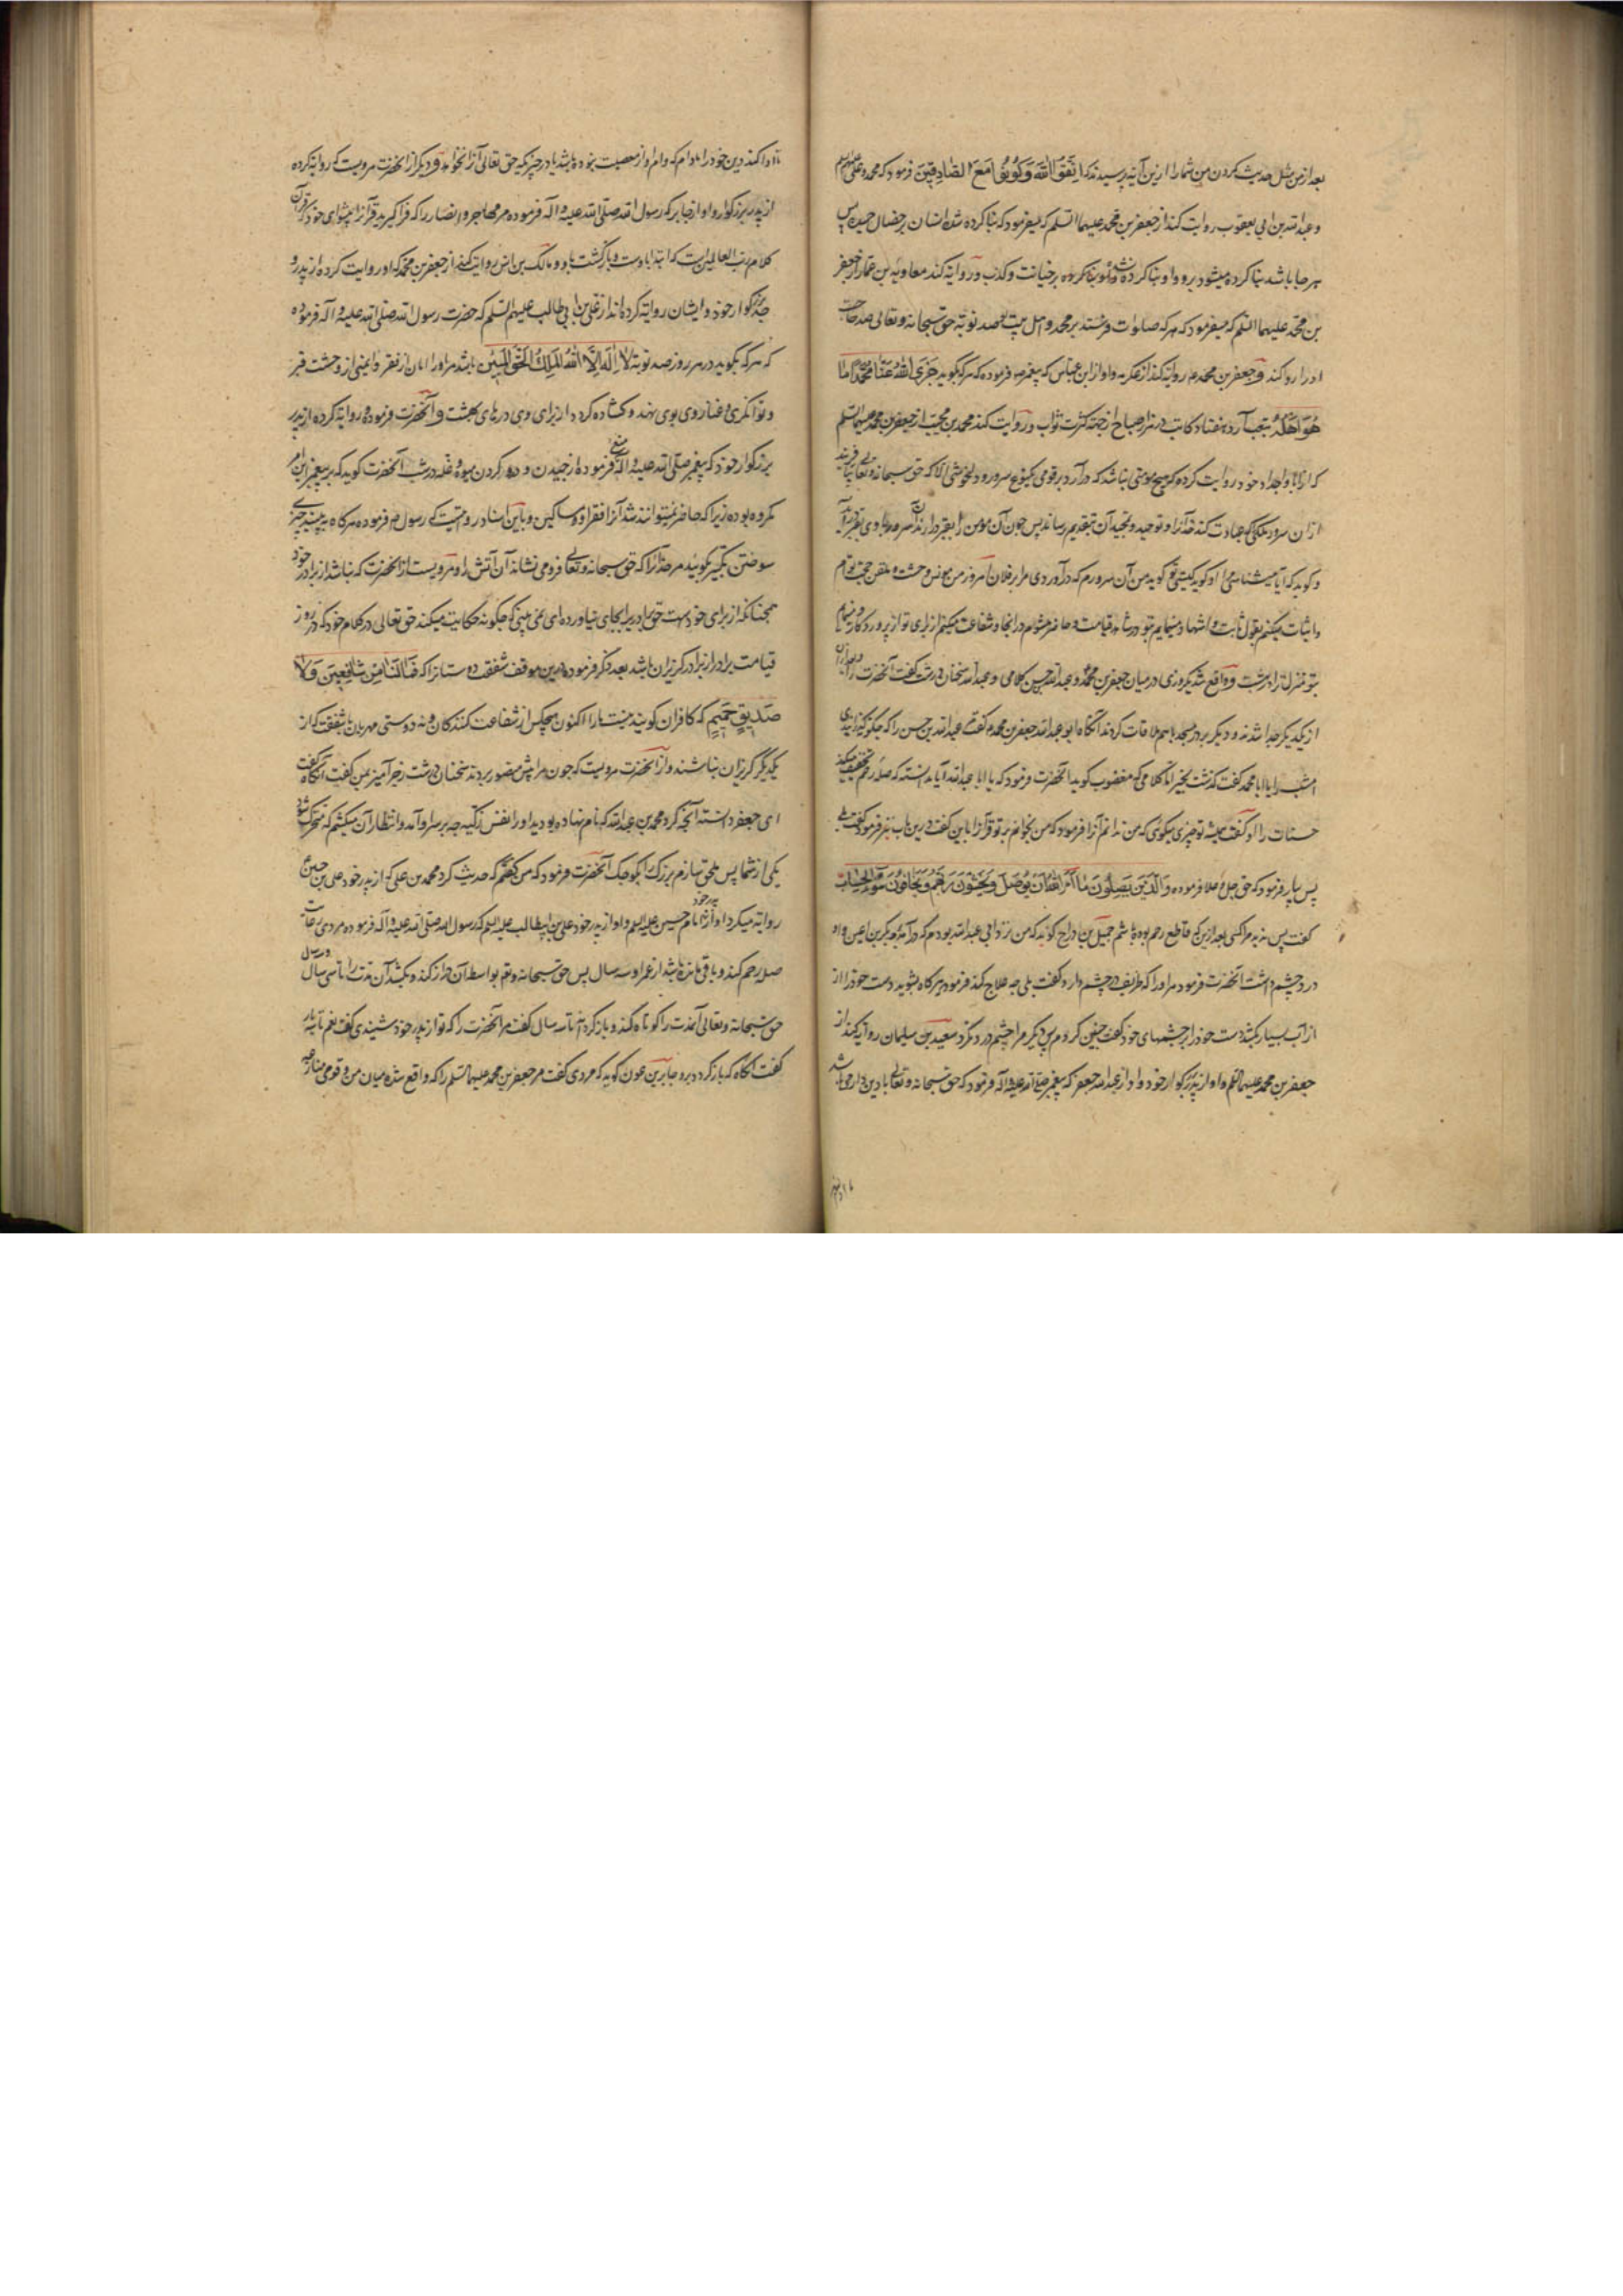 بعد از من مثل حدیث کردن من شما را ازین آیه پرسیدند که اتَّقُوا اللّٰهَ وَکُونُوا مَعَ الصَّادِقِینَ فرمود که محمد و علی
و عبدالله بن ابی یعقوب روایت کند از جعفر بن محمد علیهما السلم که میفرمود که بنا کرده شده انسان بر خصال
هر جا باشد بنا کرده میشود برو و او بنا کرده نشده بر خیانت و کذب و روایة کند معاویه بن عمار از جعفر
بن محمد علیهما السلم که میفرمود که هر که صلوات فرستد بر محمد و اهل بیت صد نوبة حق سبحانه و تعالی صد حاجت
او را روا کند و جعفر بن محمد ع روایة کند از عکرمه و او از ابن عباس که پیغمبر ص فرموده که هر که بگوید جَزَی اللّٰهُ عَنَّا مُحَمَّدًا مَا
هُوَ اَهْلُهُ بتعب آرد هفتاد کاتب در هزار صباح از جهة کثرت ثواب و روایت کند محمد بن مجیب از جعفر بن محمد علیهما السلم
که از ابا و اجداد خود روایت کرده که هیچ مومنی نباشد که درآرد بر قومی سرور و دلخوشی الا که حق سبحانه و تعالی
از ان سرور ملکی که عبادت کند خدا را و توحید و تمجید آن بتقدیم رساند پس چون آن مومن را بقبر درآرند آن سرور
و گوید که آیا میشناسی مرا او گوید کیستی تو گوید من آن سرورم که درآوردی مرا بر فلان امروز من مونس وحشت و ملقن حجت توام
و اثبات میکنم بقول ثابت و اشهاد مینمایم بتو در قیامت و حاضر میشوم در انجا و شفاعت میکنم از برای تو از پروردکار
بتو منزل ترا در بهشت و واقع شد یکروزی در میان جعفر بن محمد و عبدالله حسن کلامی و عبدالله سخنان درشت گفت آنحضرت را
از یکدیگر جدا شدند و دیگر بر در مسجد با هم ملاقات کردند آنگاه ابو عبدالله جعفر بن محمد ع گفت عبدالله بن حسن را که چگونه
امشب را یا ابا محمد گفت گذشت بخیر اما کلامی که مغضوب گوید آنحضرت فرمود که یا ابا عبدالله آیا ندانسته که صله رحم تخفیف میکند
حساب را او گفت همیشه تو چیزی میگوئی که من ندانم آنرا فرمود که من بخوانم بر تو قرآنرا باین گفت درین باب نیز فرمود گفت بلی
پس بیار فرمود که حق جل و علا فرموده وَالَّذِینَ یَصِلُونَ مَا اَمَرَ اللّٰهُ بِهِ اَنْ یُوصَلَ وَیَخْشَوْنَ رَبَّهُمْ وَیَخَافُونَ سُوءَ الْحِسَابِ
گفت پس نه بیند مرا کسی بعد ازین که قاطع رحم بوده باشم جمیل بن دراج گوید که من نزد ابی عبدالله بودم که درآمد بکر بن اعین و او
درد چشم داشت آنحضرت فرمود مر او را که ظریف درد چشم دارد گفت بلی چه علاج کند فرمود هر کاه بشوید دست خود را از
از آب بسیار بکشد دست خود را بر چشمهای خود گفت چنین کردم پس دیگر مرا چشم درد نکرد سعید بن سلیمان روایة کند از
جعفر بن محمد علیهما السلم و او از پدر بزرگوار خود و او از عبدالله جعفر که پیغمبر صلی الله علیه و آله فرمود که حق سبحانه و تعالی با دین دار می باشد
تا ادا کند دین خود را مادام که وام او از معصیت نبوده باشد یا در چیزیکه حق تعالی آنرا نخواهد و دیگر از آنحضرت مرویست که روایة کرده
از پدر بزرگوار و او از جابر که رسول الله صلی الله علیه و آله فرموده مر مهاجر و انصار را که فرا گیرید قرآنرا پیشوای خود که قرآن
کلام رب العالمین است که ابتدا باوست و بازگشت باو و مالک بن انس روایت کند از جعفر بن محمد که او روایت کرده از پدر و
جد بزرگوار خود و ایشان روایة کرده‌اند از علی بن ابی طالب علیهم السلم که حضرت رسول الله صلی الله علیه و آله فرموده
که هر که بگوید در هر روز صد نوبة لَا اِلٰهَ اِلَّا اللّٰهُ الْمَلِكُ الْحَقُّ الْمُبِینُ باشد مر او را امان از فقر و ایمنی از وحشت قبر
و توانگری و غنا روی بوی نهد و گشاده گردد از برای وی درهای بهشت و آنحضرت فرموده و روایة کرده از پدر
بزرگوار خود که پیغمبر صلی الله علیه و آله منع فرموده از چیدن و درو کردن میوه و غله در شب آنحضرت گوید که بر پیغمبر این امر
مکروه بوده زیرا که حاضر نمیتوانند شد آنرا فقرا و مساکین و باین اسناد مرویست که رسول ص فرموده هر کاه به بینید چیزی
سوختن تکبیر بگوئید مر خدا را که حق سبحانه و تعالی فرو می نشاند آن آتش را و مرویست از آنحضرت که نباشد از برادر خود
همچنانکه از برای خود هست حق برادر را بجای نیاورده ای نمی بینی که چگونه حکایت میکند حق تعالی در کلام خود که در روز
قیامت برادر از برادر گریزان باشد بعد ذکر فرموده درین موقف شفقت دوستانرا که فَمَا لَنَا مِنْ شَافِعِینَ وَلَا
صَدِیقٍ حَمِیمٍ که کافران گویند نیست ما را اکنون هیچکس از شفاعت کنندگان و نه دوستی مهربان با شفقت که از
یکدیگر گریزان نباشند و از آنحضرت مرویست که چون مرا پیش منصور بردند سخنان درشت زجر آمیز بمن گفت آنگاه گفت
ای جعفر دانسته آنچه کرد محمد بن عبدالله که نام نهاده بودید او را نفس زکیه چه بر سر او آمد و انتظار آن میکشم که متحرک شود
یکی از شما پس ملحق سازم بزرگ را بکوچک آنحضرت فرمود که من گفتم که حدیث کرد محمد بن علی که از پدر خود علی بن حسین
روایة میکرد و او از پدر خود امام حسین علیه السلم و او از پدر خود علی بن ابیطالب علیه السلم که رسول الله صلی الله علیه و آله فرموده مردی
صله رحم کند و باقی مانده باشد از عمر او سه سال پس حق سبحانه و تعم بواسطه آن دراز کند و بکشد آن مدت را تا سی سال
حق سبحانه و تعالی آن مدت را کوتاه کند و باز گرداند تا سه سال گفت مر آنحضرت را که تو از پدر خود شنیدی گفت نعم تا سه بار
گفت آنگاه که بازگردد برو جابر بن عون گوید که مردی گفت مر جعفر بن محمد علیهما السلم را که واقع شده میان من و قومی منازعه